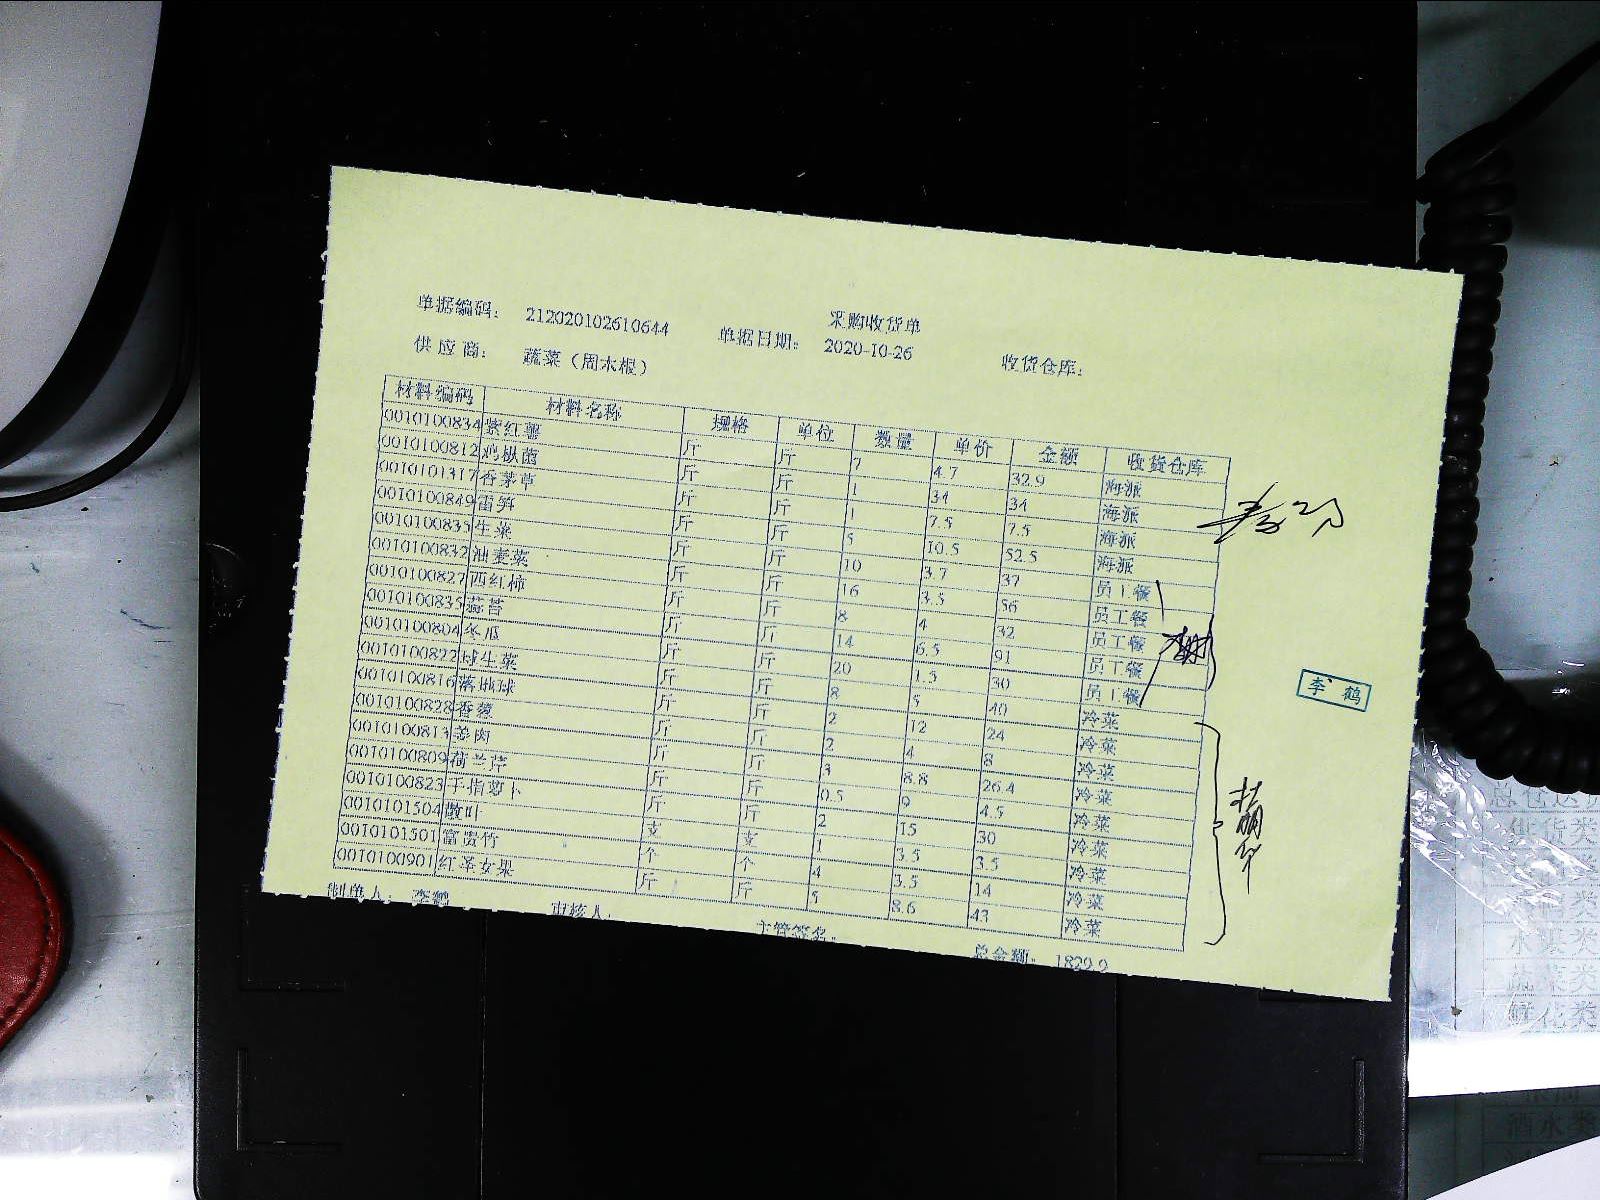 采购收货单
单据编码: 212020102610644 单据日期: 2020-10-26 收货仓库:
供应商: 蔬菜(周木根)
材料编码 材料名称 规格 单位 数量 单价 金额 收货仓库
0010100834 紫红薯 斤 斤 7 4.7 32.9 海派
0010100812 鸡枞菌 斤 斤 1 34 34 海派
0010101317 香茅草 斤 斤 1 7.5 7.5 海派
0010100849 雷笋 斤 斤 5 10.5 52.5 海派
0010100835 生菜 斤 斤 10 3.7 37 员工餐
0010100832 油麦菜 斤 斤 16 3.5 56 员工餐
0010100827 西红柿 斤 斤 8 4 32 员工餐
0010100835 蒜苔 斤 斤 14 6.5 91 员工餐
0010100804 冬瓜 斤 斤 20 1.5 30 员工餐
0010100822 球生菜 斤 斤 8 5 40 冷菜
0010100816 落地球 斤 斤 2 12 24 冷菜
0010100828 香葱 斤 斤 2 4 8 冷菜
0010100813 姜肉 斤 斤 3 8.8 26.4 冷菜
0010100809 荷兰芹 斤 斤 0.5 9 4.5 冷菜
0010100823 手指萝卜 斤 斤 2 15 30 冷菜
0010101504 散叶 支 支 1 3.5 3.5 冷菜
0010101501 富贵竹 个 个 4 3.5 14 冷菜
0010100901 红圣女果 斤 斤 5 8.6 43 冷菜
李鹤
制单人: 李鹤 审核人: 主管签名: 总金额: 1829.9
蔬菜类
鲜花类
酒水类